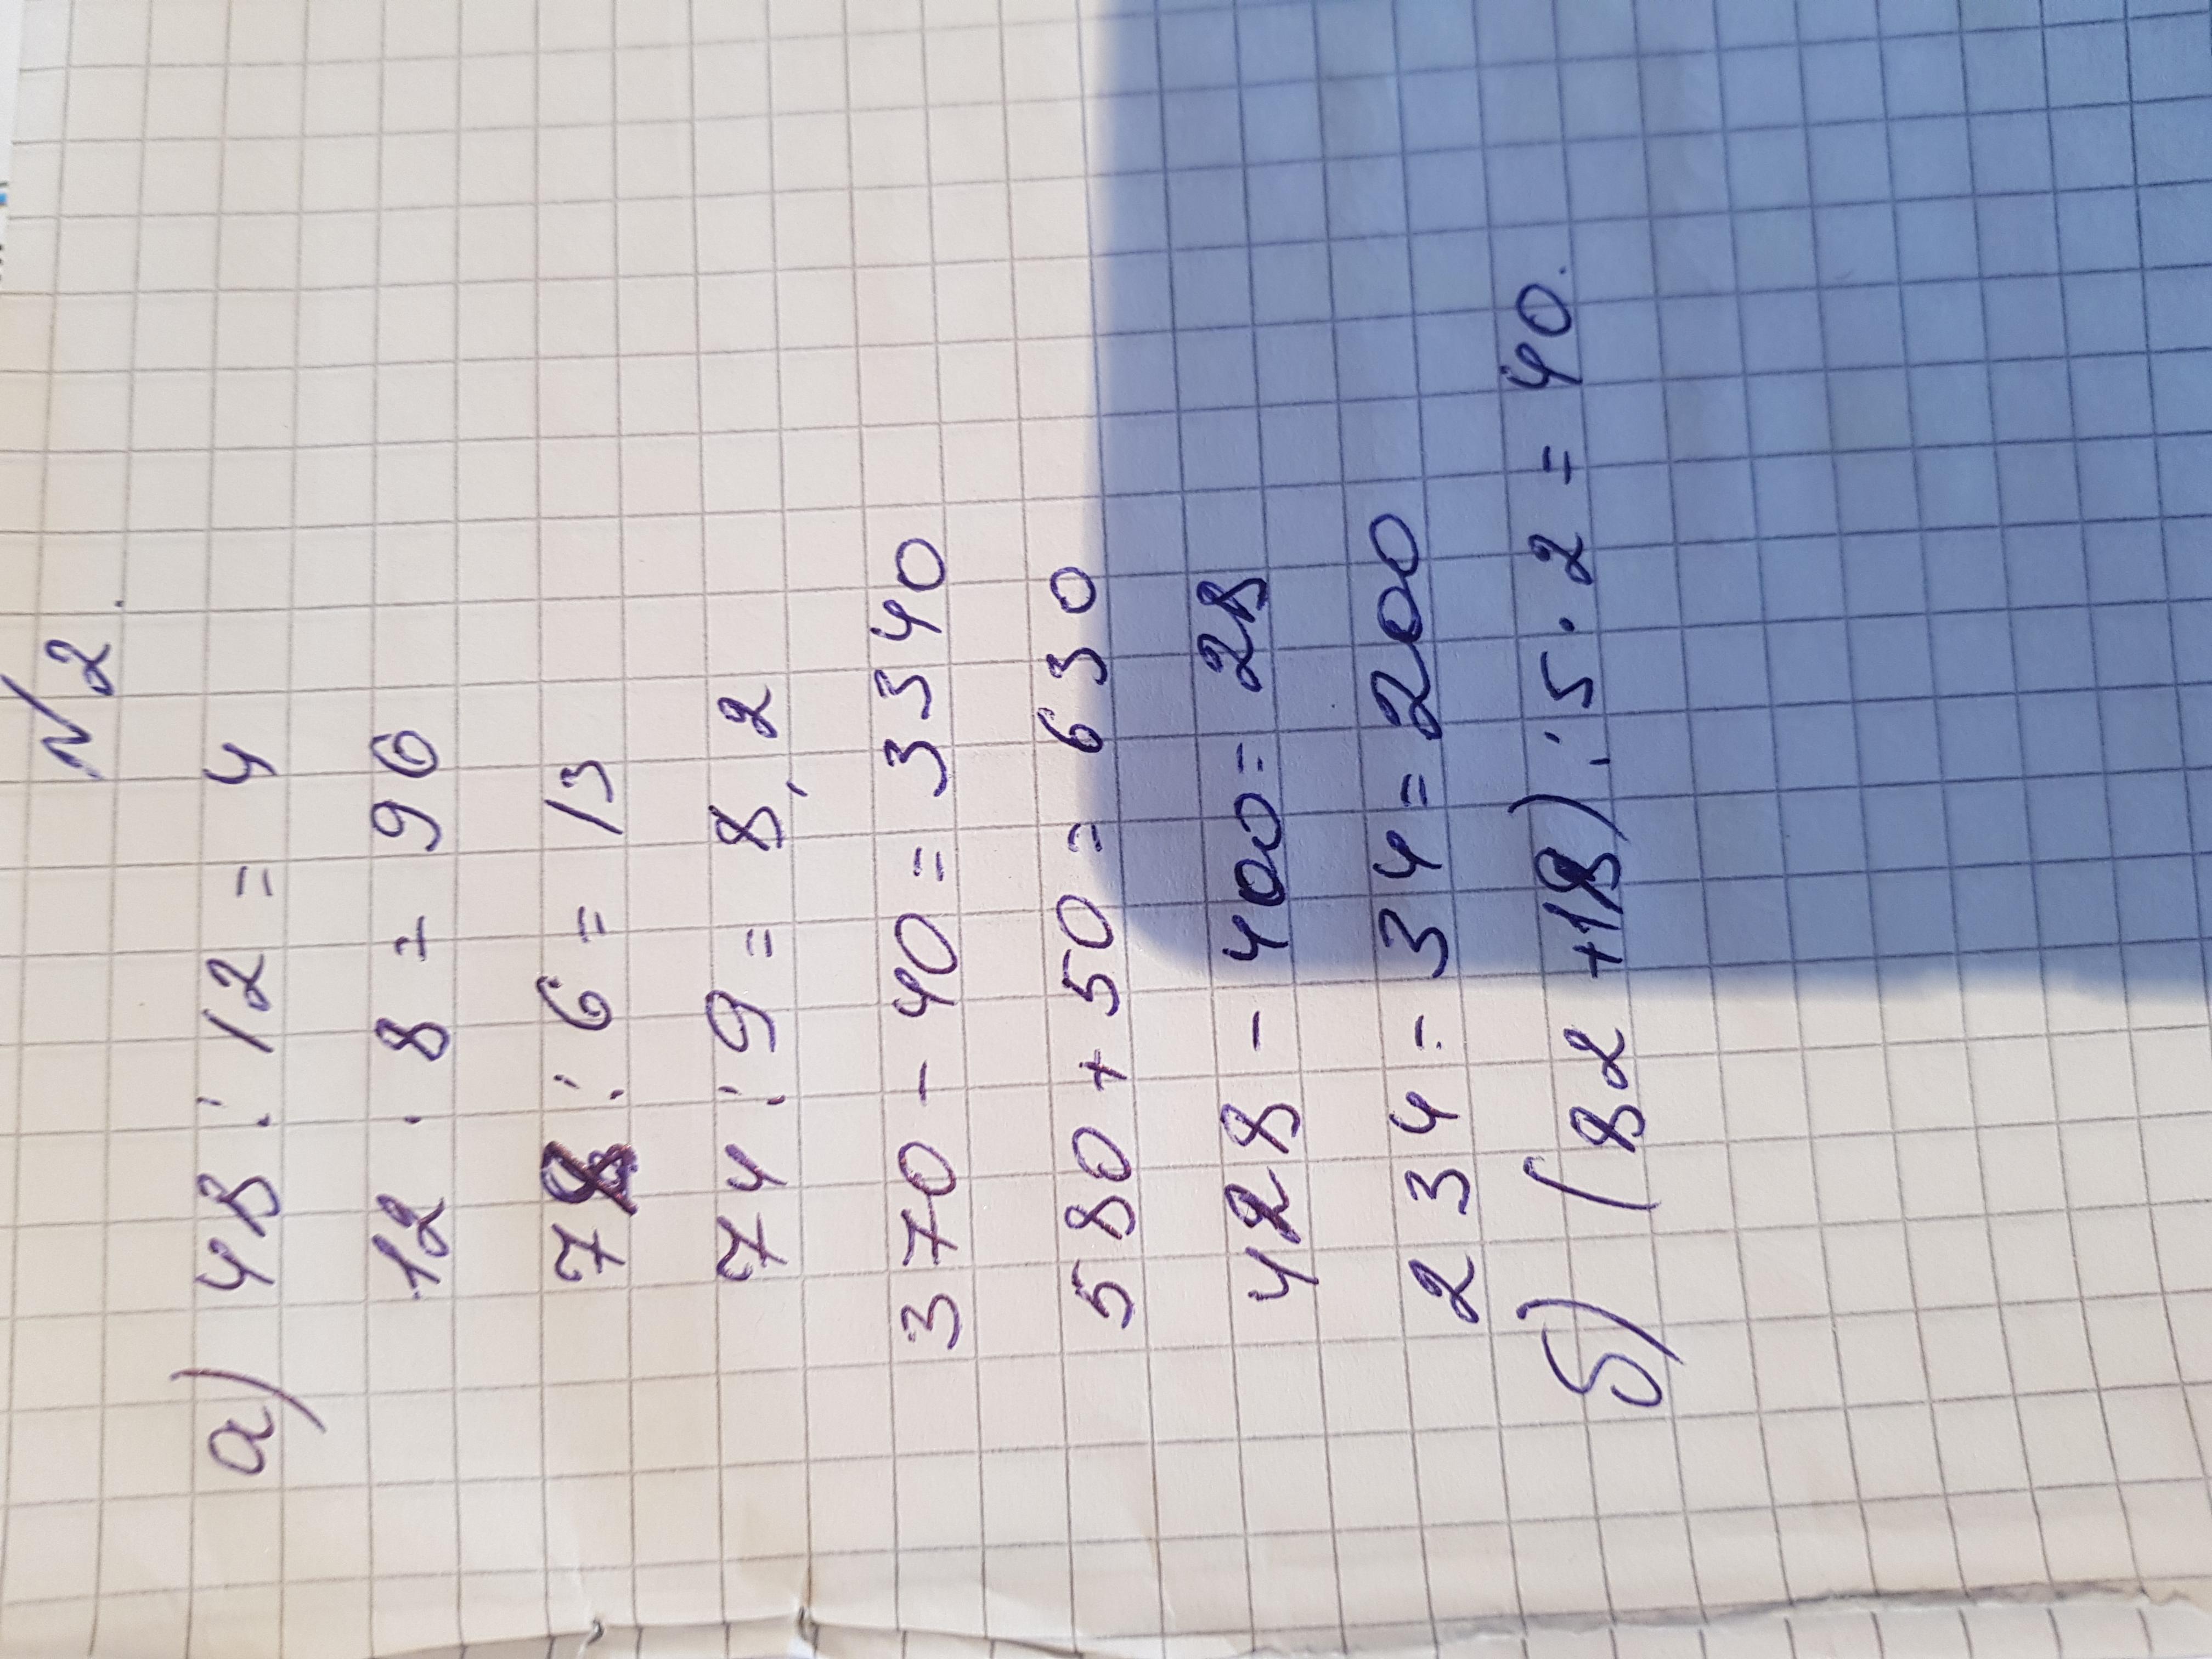 N2.
а) 48 : 12 = 4
12 · 8 = 96
78 : 6 = 13
74 : 9 = 8,2
370 - 40 = 3340
580 + 50 = 630
428 - 400 = 28
234 - 34 = 200
б) (82 + 18) : 5 · 2 = 40.